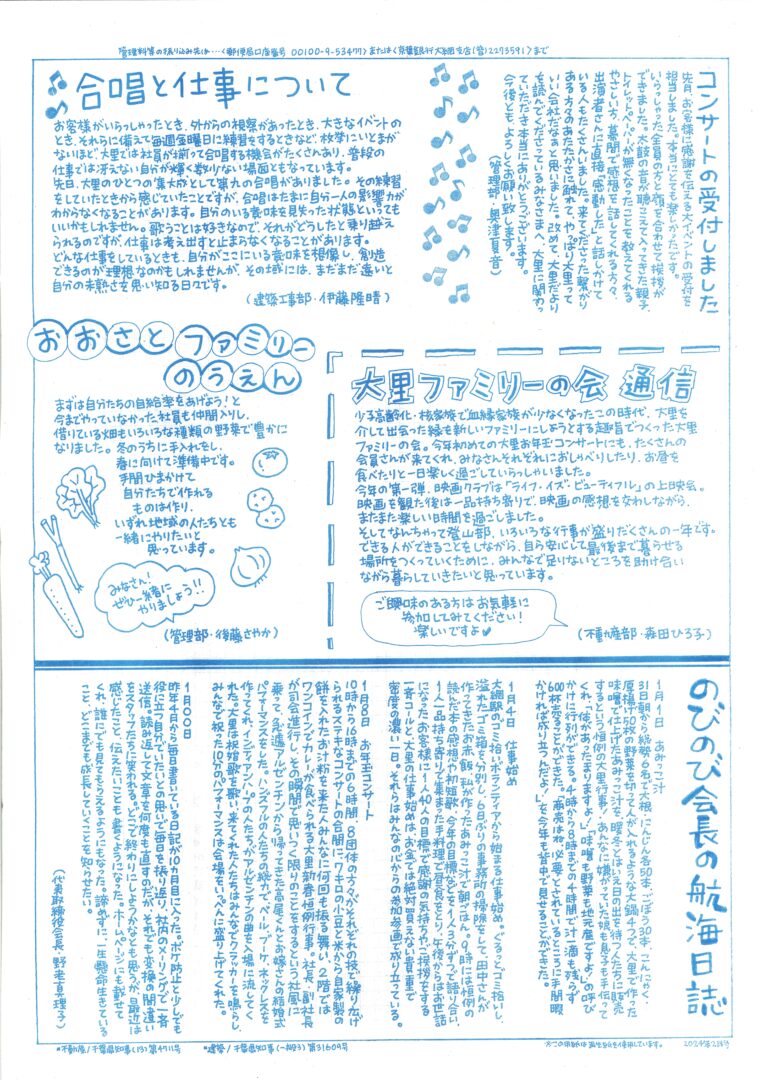 管理料等の振り込み先は…〈郵便局口座番号 00100-9-53477〉または〈京葉銀行大網支店(普)2273591〉まで
コンサートの受付しました
先月、お客様に感謝を伝える大イベントの受付を
担当しました。本当にとても楽しかったです。
いらっしゃった全員の方と顔を合わせて挨拶が
できました。太鼓の音が聴こえて入ってきた親子、
トイレットペーパーが無くなったことを教えてくれる
やさしい方、幕間で感想を話してくれる方々、
出演者さんに直接「感動した」と話しかけて
いる人もたくさんいました。来てくださった繋がり
ある方々のあたたかさに触れて、やっぱり大里って
いい会社だなぁと思いました。改めて、大里だより
を読んでくださっているみなさまへ、大里に関わっ
ていただき本当にありがとうございます。
今後ともよろしくお願い致します。
(管理部・奥津夏音)
合唱と仕事について
お客様がいらっしゃったとき、外からの視察があったとき、大きなイベントの
とき、それらに備えて毎週金曜日に練習をするときなど、枚挙にいとまが
ないほど、大里では社員が揃って合唱する機会がたくさんあり、普段の
仕事では冴えない自分が輝く数少ない場面ともなっています。
先日、大里のひとつの集大成として第九の合唱がありました。その練習
をしていたときから感じていたことですが、合唱はたまに自分一人の影響力が
わからなくなることがあります。自分のいる意味を見失った状態といっても
いいかもしれません。歌うことは好きなので、それがどうしたと乗り越え
られるのですが、仕事は考え出すと止まらなくなることがあります。
どんな仕事をしているときも、自分がここにいる意味を想像し、創造
できるのが理想なのかもしれませんが、その域には、まだまだ遠いと
自分の未熟さを思い知る日々です。
(建築工事部・伊藤隆晴)
おおさとファミリー
のうえん
まずは自分たちの自給率をあげよう！と
今までやっていなかった社員も仲間入りし、
借りている畑もいろいろな種類の野菜で豊かに
なりました。冬のうちに手入れをし、
春に向けて準備中です。
手間ひまかけて
自分たちで作れる
ものは作り、
いずれ地域の人たちとも
一緒にやりたいと
思っています。
みなさん！
ぜひ一緒に
やりましょう！！
(管理部・後藤さやか)
大里ファミリーの会 通信
少子高齢化・核家族で血縁家族が少なくなったこの時代、大里を
介して出会った縁を新しいファミリーにしようとする趣旨でつくった大里
ファミリーの会。今年初めての大里お年玉コンサートにも、たくさんの
会員さんが来てくれ、みなさんそれぞれにおしゃべりしたり、お昼を
食べたりと一日楽しく過ごしていらっしゃいました。
今年の第一弾、映画クラブは「ライフ・イズ・ビューティフル」の上映会。
映画を観た後は一品持ち寄りで、映画の感想を交わしながら、
またまた楽しい時間を過ごしました。
そしてなんちゃって登山部、いろいろな行事が盛りだくさんの一年です。
できる人ができることをしながら、自ら安心して最後まで暮らせる
場所をつくっていくために、みんなで足りないところを助け合い
ながら暮らしていきたいと思っています。
ご興味のある方はお気軽に
参加してみてください！
楽しいですよ♥
(不動産部・森田ひろ子)
のびのび会長の航海日誌
1月1日 あみっこ汁
31日朝から総勢6名で大根・にんじん各50本、ごぼう30本、こんにゃく・
原揚げ50枚の野菜を切って、人が入れるような大鍋4つで、大里で作った
味噌で仕上げたあみっこ汁を、暖冬とはいえ日の出を待つ人たちに販売
するという恒例の大里行事！あんなに嫌がっていた娘も息子も手伝って
くれ、「体があったまりますよ」「味噌も野菜も地元産ですよ」の呼び
かけに行列ができる。4時から8時までの4時間で汁一滴も残らず
600杯売ることができた。「商売はね、必要とされているところに手間暇
かければ成り立つんだよ」を今年も皆中で見せることができた。
1月4日 仕事始め
大網駅のゴミ拾いボランティアから始まる仕事始め。ぐるっとゴミ拾いし、
溢れたゴミ箱を分別し、6日ぶりの事務所の掃除をして、田中さんが
作ってきたお赤飯、私が作ったあみっこ汁で朝ごはん。9時には恒例の
読んだ本の感想や初短歌、今年の目標などを1人3分ずつで語り合い、
1人一品持ち寄りで集まった手料理で昼食をとり、午後からはお世話
になったお客様に1人40人の目標で感謝の気持ちやご挨拶をする
一斉コールと、大里の仕事始めは、お金では絶対買えない貴重で
密度の濃い一日。それらはみんなの心からの参加参画で成り立っている。
1月8日 お年玉コンサート
10時から16時までの6時間、8団体の方々がそれぞれの技で繰り広げ
られるステキなコンサートの合間に、7キロの小豆と米から自家製の
餅を入れたお汁粉を来た人みんなに何回も振る舞い、2階では
ワンコインでカレーが食べられる大里新春恒例行事。社長・副社長
が司会進行し、その瞬間で思いつく限りのことをするという社風に
乗って、急遽アルゼンチンから帰ってきた高原くんとお嫁さんの結婚式
パフォーマンスをした。ハンズフルの人たちの総力で、ベール、ブーケ、ネックレスなどを
作ってくれ、インディアンハープの人たちがアルゼンチンの曲を入場に流してく
れた。大里は祝婚歌を歌い、来てくれた人たちはみんなでクラッカーを鳴らし、
みんなで祝った10分のパフォーマンスは会場をいっぺんに盛り上げてくれた。
1月00日
昨年4月から毎日書いている日記が10カ月目に入った。ボケ防止と少しでも
役に立つ自分でいたいとの思いで毎日を振り返り、社内のメーリングで一斉
送信。読み返して文章を何度も直すのだが、それでも変換の間違い
をスタッフたちに笑われる。どこで終わりにしようかなとも思うが、日最近は
感じたこと、伝えたいことも書くようになった。ホームページにも載せて
くれ、誰にでも見てもらえるようにもなった。諦めずに、一生懸命生きている
こと、どこまでも成長していくことを知らせたい。
(代表取締役会長・野老真理子)
*不動産/千葉県知事(13)第4911号
*建築/千葉県知事(一般3)第31609号
*この用紙は再生紙を使用しています。
2024年2月号